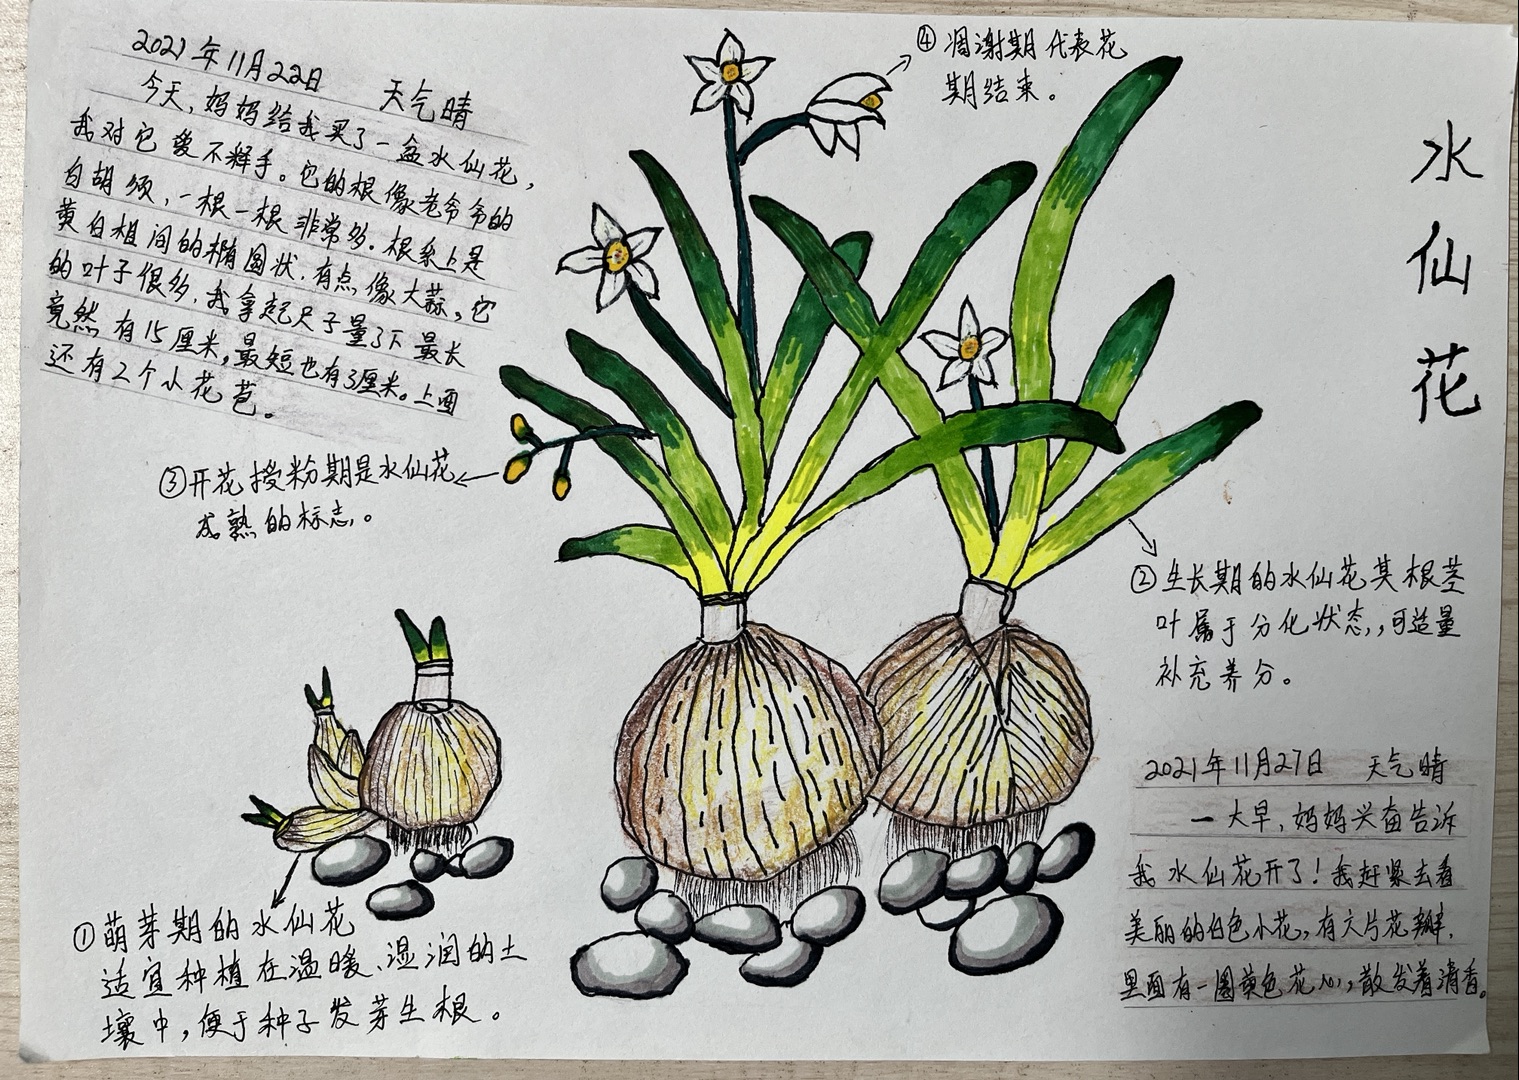 水仙花
2021年11月22日 天气晴
今天,妈妈给我买了一盆水仙花,
我对它爱不释手。它的根像老爷爷的
白胡须,一根一根非常多.根系上是
黄白相间的椭圆状.有点像大蒜,它
的叶子很多.我拿起尺子量了下最长
竟然有15厘米,最短也有3厘米。上面
还有2个小花苞。
④凋谢期代表花
期结束。
③开花授粉期是水仙花
成熟的标志。
②生长期的水仙花其根茎
叶属于分化状态,,可适量
补充养分。
①萌芽期的水仙花
适宜种植在温暖、湿润的土
壤中,便于种子发芽生根。
2021年11月27日 天气晴
一大早,妈妈兴奋告诉
我水仙花开了!我赶紧去看
美丽的白色小花,有六片花瓣.
里面有一圈黄色花心,散发着清香。